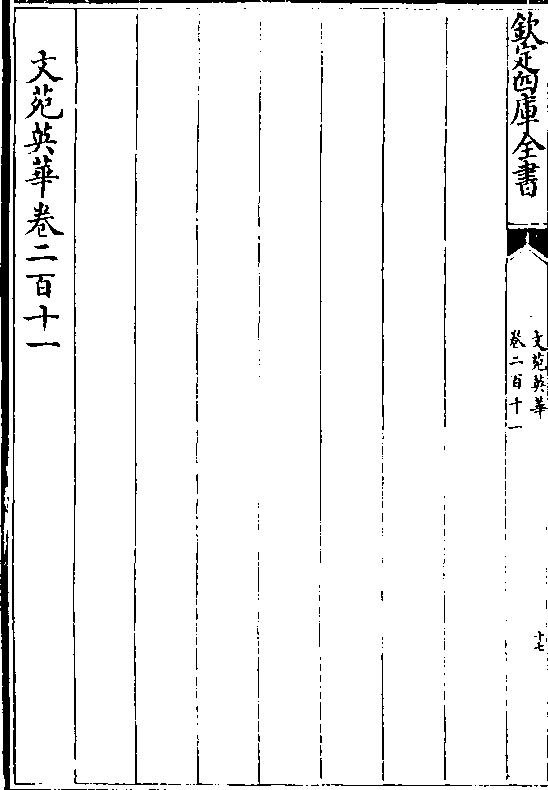 欽定四庫全書
文苑英華
卷二百十一
十七
文苑英華卷二百十一